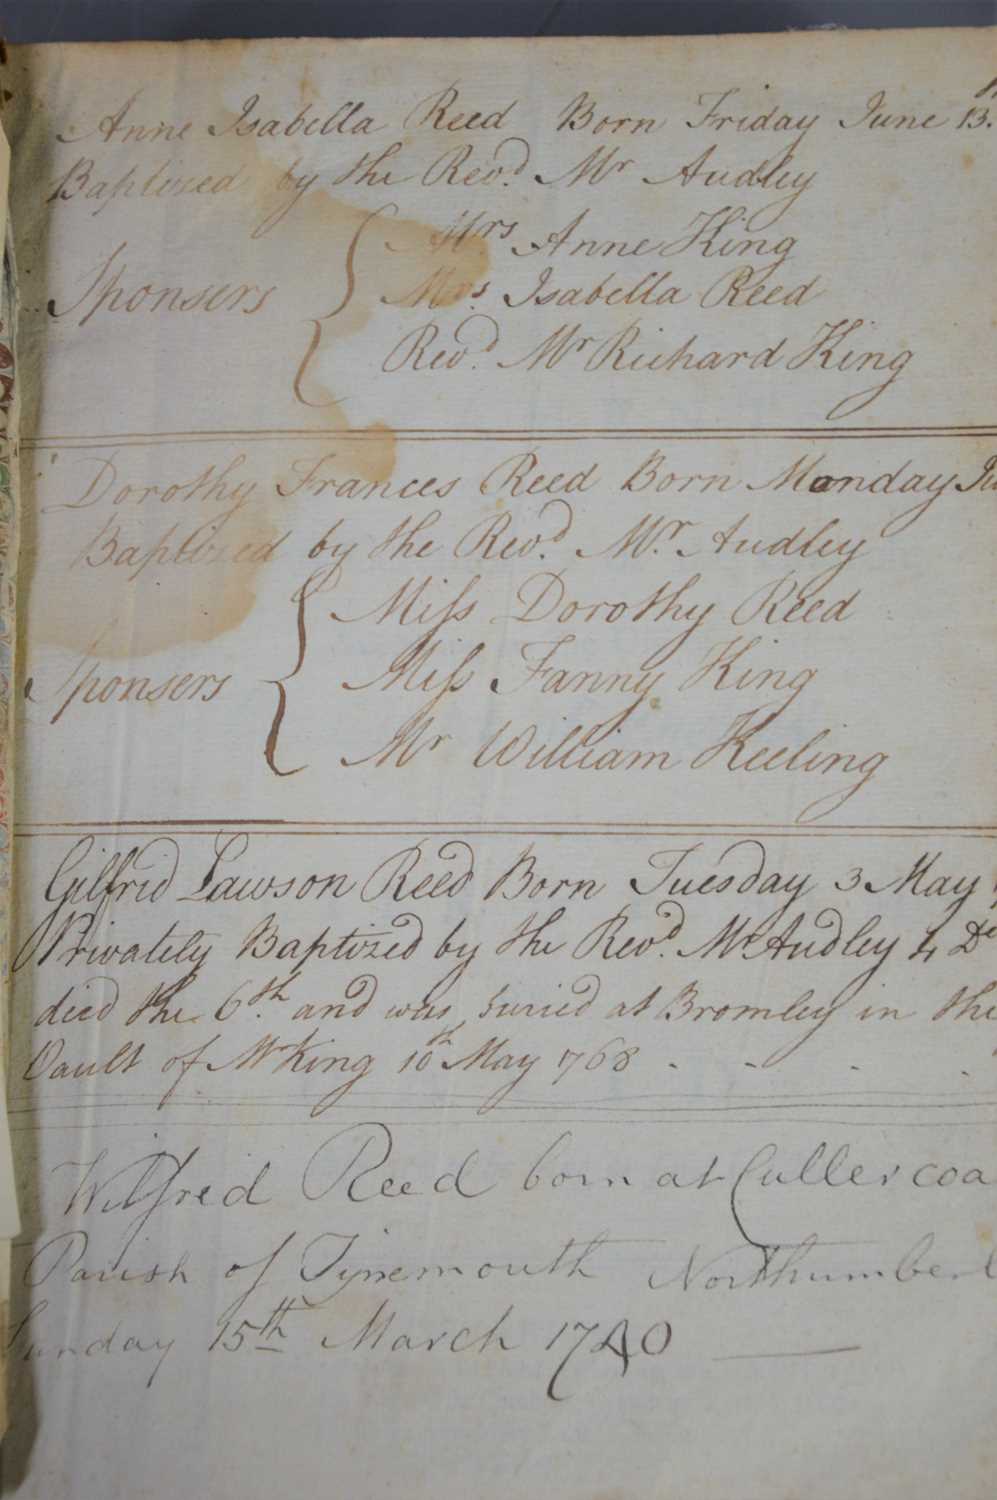 Anne Isabella Reed Born Friday June 13.
Baptized by the Revd. Mr Audley
Sponsers
Mrs Anne King
Mrs. Isabella Reed
Revd. Mr Richard King
Dorothy Frances Reed Born Monday
Baptized by the Revd. Mr. Audley
Sponsers
Miſs Dorothy Reed
Miſs Fanny King
Mr William Keeling
Gilfrid Lawson Reed Born Tuesday 3 May
Privately Baptized by the Revd. Mr Audley 4
died the 6th. and was buried at Bromley in the
Vault of Mr King 10th May 1768 - - - -
Wilfred Reed born at Cullercoa
Parish of Tynemouth Northumberl
Sunday 15th March 1740 —